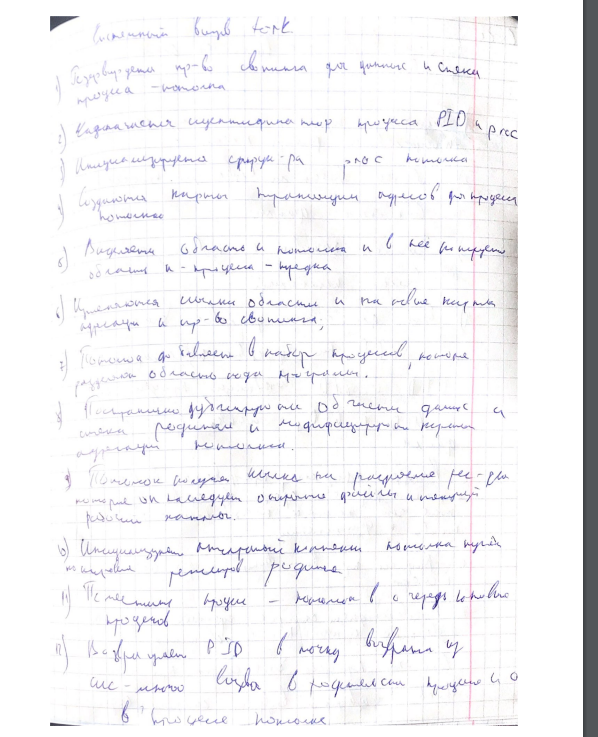 Системный вызов fork
1) Резервируется пр-во свопинга для данных и стека
процесса - потомка
2) Назначается идентификатор процесса PID и proc
3) Инициализируется структ-ра proc потомка
4) Создаются карты трансляции адресов для процесса
потомка
5) Выделяется область u потомка и в нее копируется
область u - процесса - предка
6) Изменяются ссылки области u на новые карты
адресации и пр-во свопинга,
7) Потомок добавляется в набор процессов, которые
разделяют область кода программы.
8) Постранично дублируются области данных и
стека родителя и модифицируются карты
адресации потомка.
9) Потомок получает ссылки на разделяемые рес-сы
которые он наследует открытые файлы и текущий
рабочий каталог.
10) Инициализирует аппаратный контекст потомка путем
копирования регистров родителя
11) Поместить процесс - потомок в очередь готовых
процессов
12) Возвращает PID в точку возврата из
сис-много вызова в родительском процессе и 0
в процессе потомке